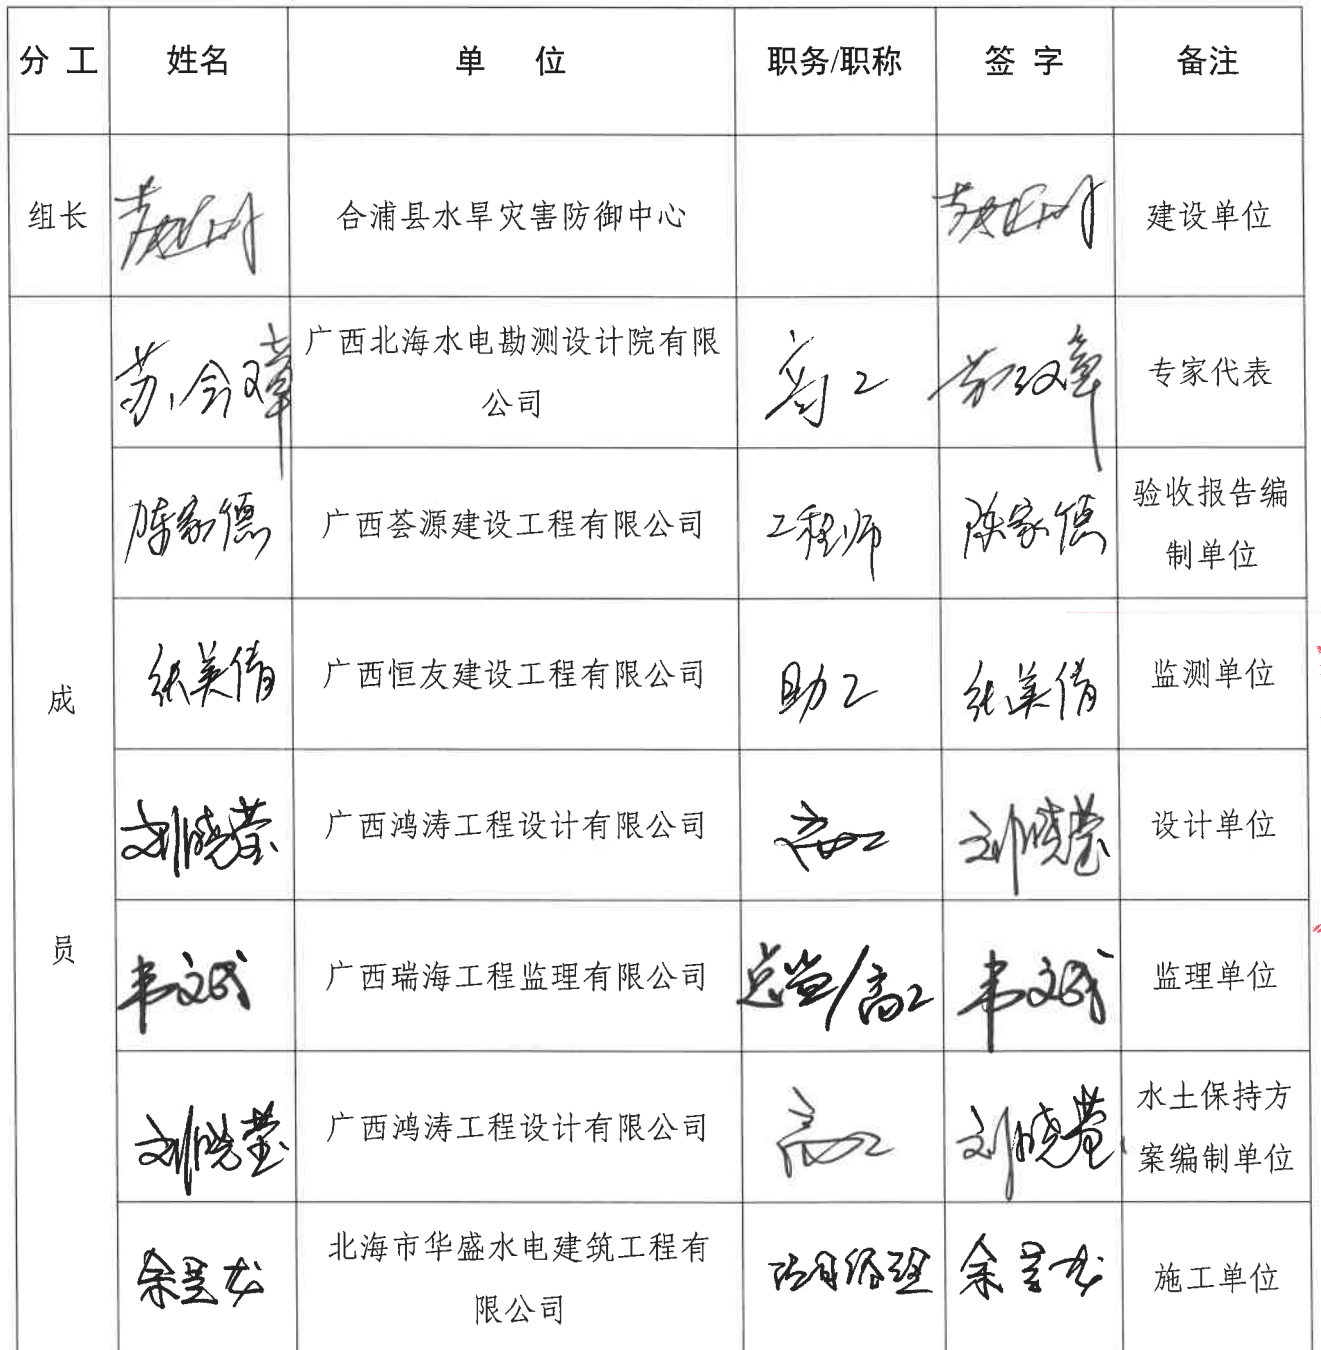 分 工 姓名 单 位 职务/职称 签 字 备注
组长 合浦县水旱灾害防御中心 建设单位
广西北海水电勘测设计院有限
公司
高工 专家代表
陈家德 广西荟源建设工程有限公司 工程师 陈家德
验收报告编
制单位
张美倩 广西恒友建设工程有限公司 助工 张美倩 监测单位
成
刘晓莹 广西鸿涛工程设计有限公司 高工 刘晓莹 设计单位
员
韦文成 广西瑞海工程监理有限公司 总监/高工 韦文成 监理单位
刘晓莹 广西鸿涛工程设计有限公司 高工 刘晓莹
水土保持方
案编制单位
北海市华盛水电建筑工程有
限公司
项目经理 施工单位